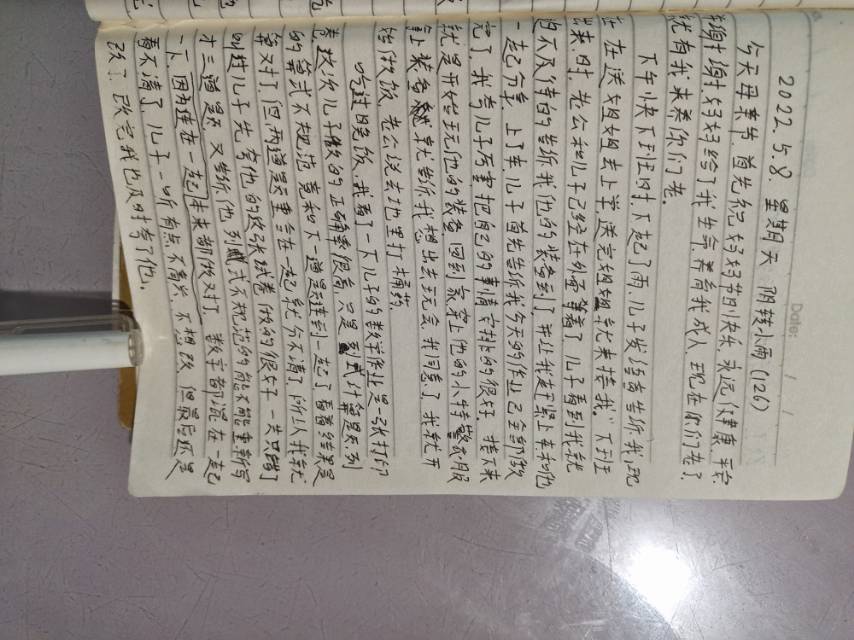 Date: / /
2022.5.8. 星期天 阴转小雨 (126)
今天母亲节，首先祝妈妈节日快乐，永远健康平安
谢谢妈妈给了我生命，养育我成人，现在你们老了，
就有我来养你们老。
下午快下班时下起了雨，儿子发信息告诉我，现
在在送姐姐去上学，送完姐姐就来接我。"下班
出来时，老公和儿子已经在外面等着了，儿子看到我就
迫不及待的告诉我他的装备到了，并让我赶紧上车和他
一起分享，上了车，儿子首先告诉我今天的作业已全部做
完了，我夸儿子厉害，把自己的事情安排的很好，接下来
就是开始玩他的装备，回到家穿上他的小特警衣服
拿上装备就告诉我想出去玩会，我同意了，我就开
始做饭，老公说去地里打桶药。
吃过晚饭，我看了一下儿子的数学作业是一张打印
卷，这次儿子做的正确率很高，只是列式计算题列
的算式不规范，竟和下一道题连到一起了，看着结果是
算对了，但两道题重合在一起就分不清了，所以我就
叫过儿子先夸他的这张试卷做的很好，一共只错了
才三道题，又告诉他列式不规范的能不能重新写
一下，因为连在一起本来都做对了，数字都混在一起
看不清了，儿子一听有点不高兴，不想改，但最后还是
改了，改完我也及时夸了他。